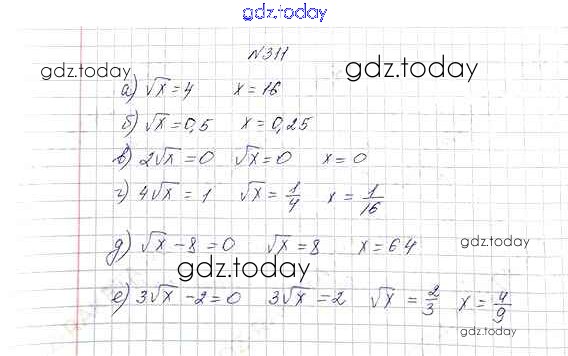 gdz.today
№311
gdz.today gdz.today
а) √x = 4 x = 16
б) √x = 0,5 x = 0,25
в) 2√x = 0 √x = 0 x = 0
г) 4√x = 1 √x = 1/4 x = 1/16
д) √x - 8 = 0 √x = 8 x = 64
gdz.today
gdz.today
е) 3√x - 2 = 0 3√x = 2 √x = 2/3 x = 4/9
gdz.today